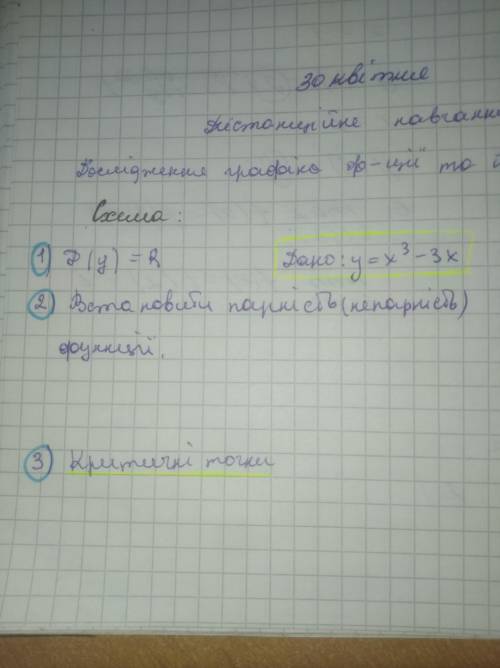 30 квітня
Дистанційне навчанн
Дослідження графіка ф-ції та
Схема:
1) D(y) = R
Дано: y = x³ - 3x
2) Встановити парність (непарність)
функції.
3) Критичні точки